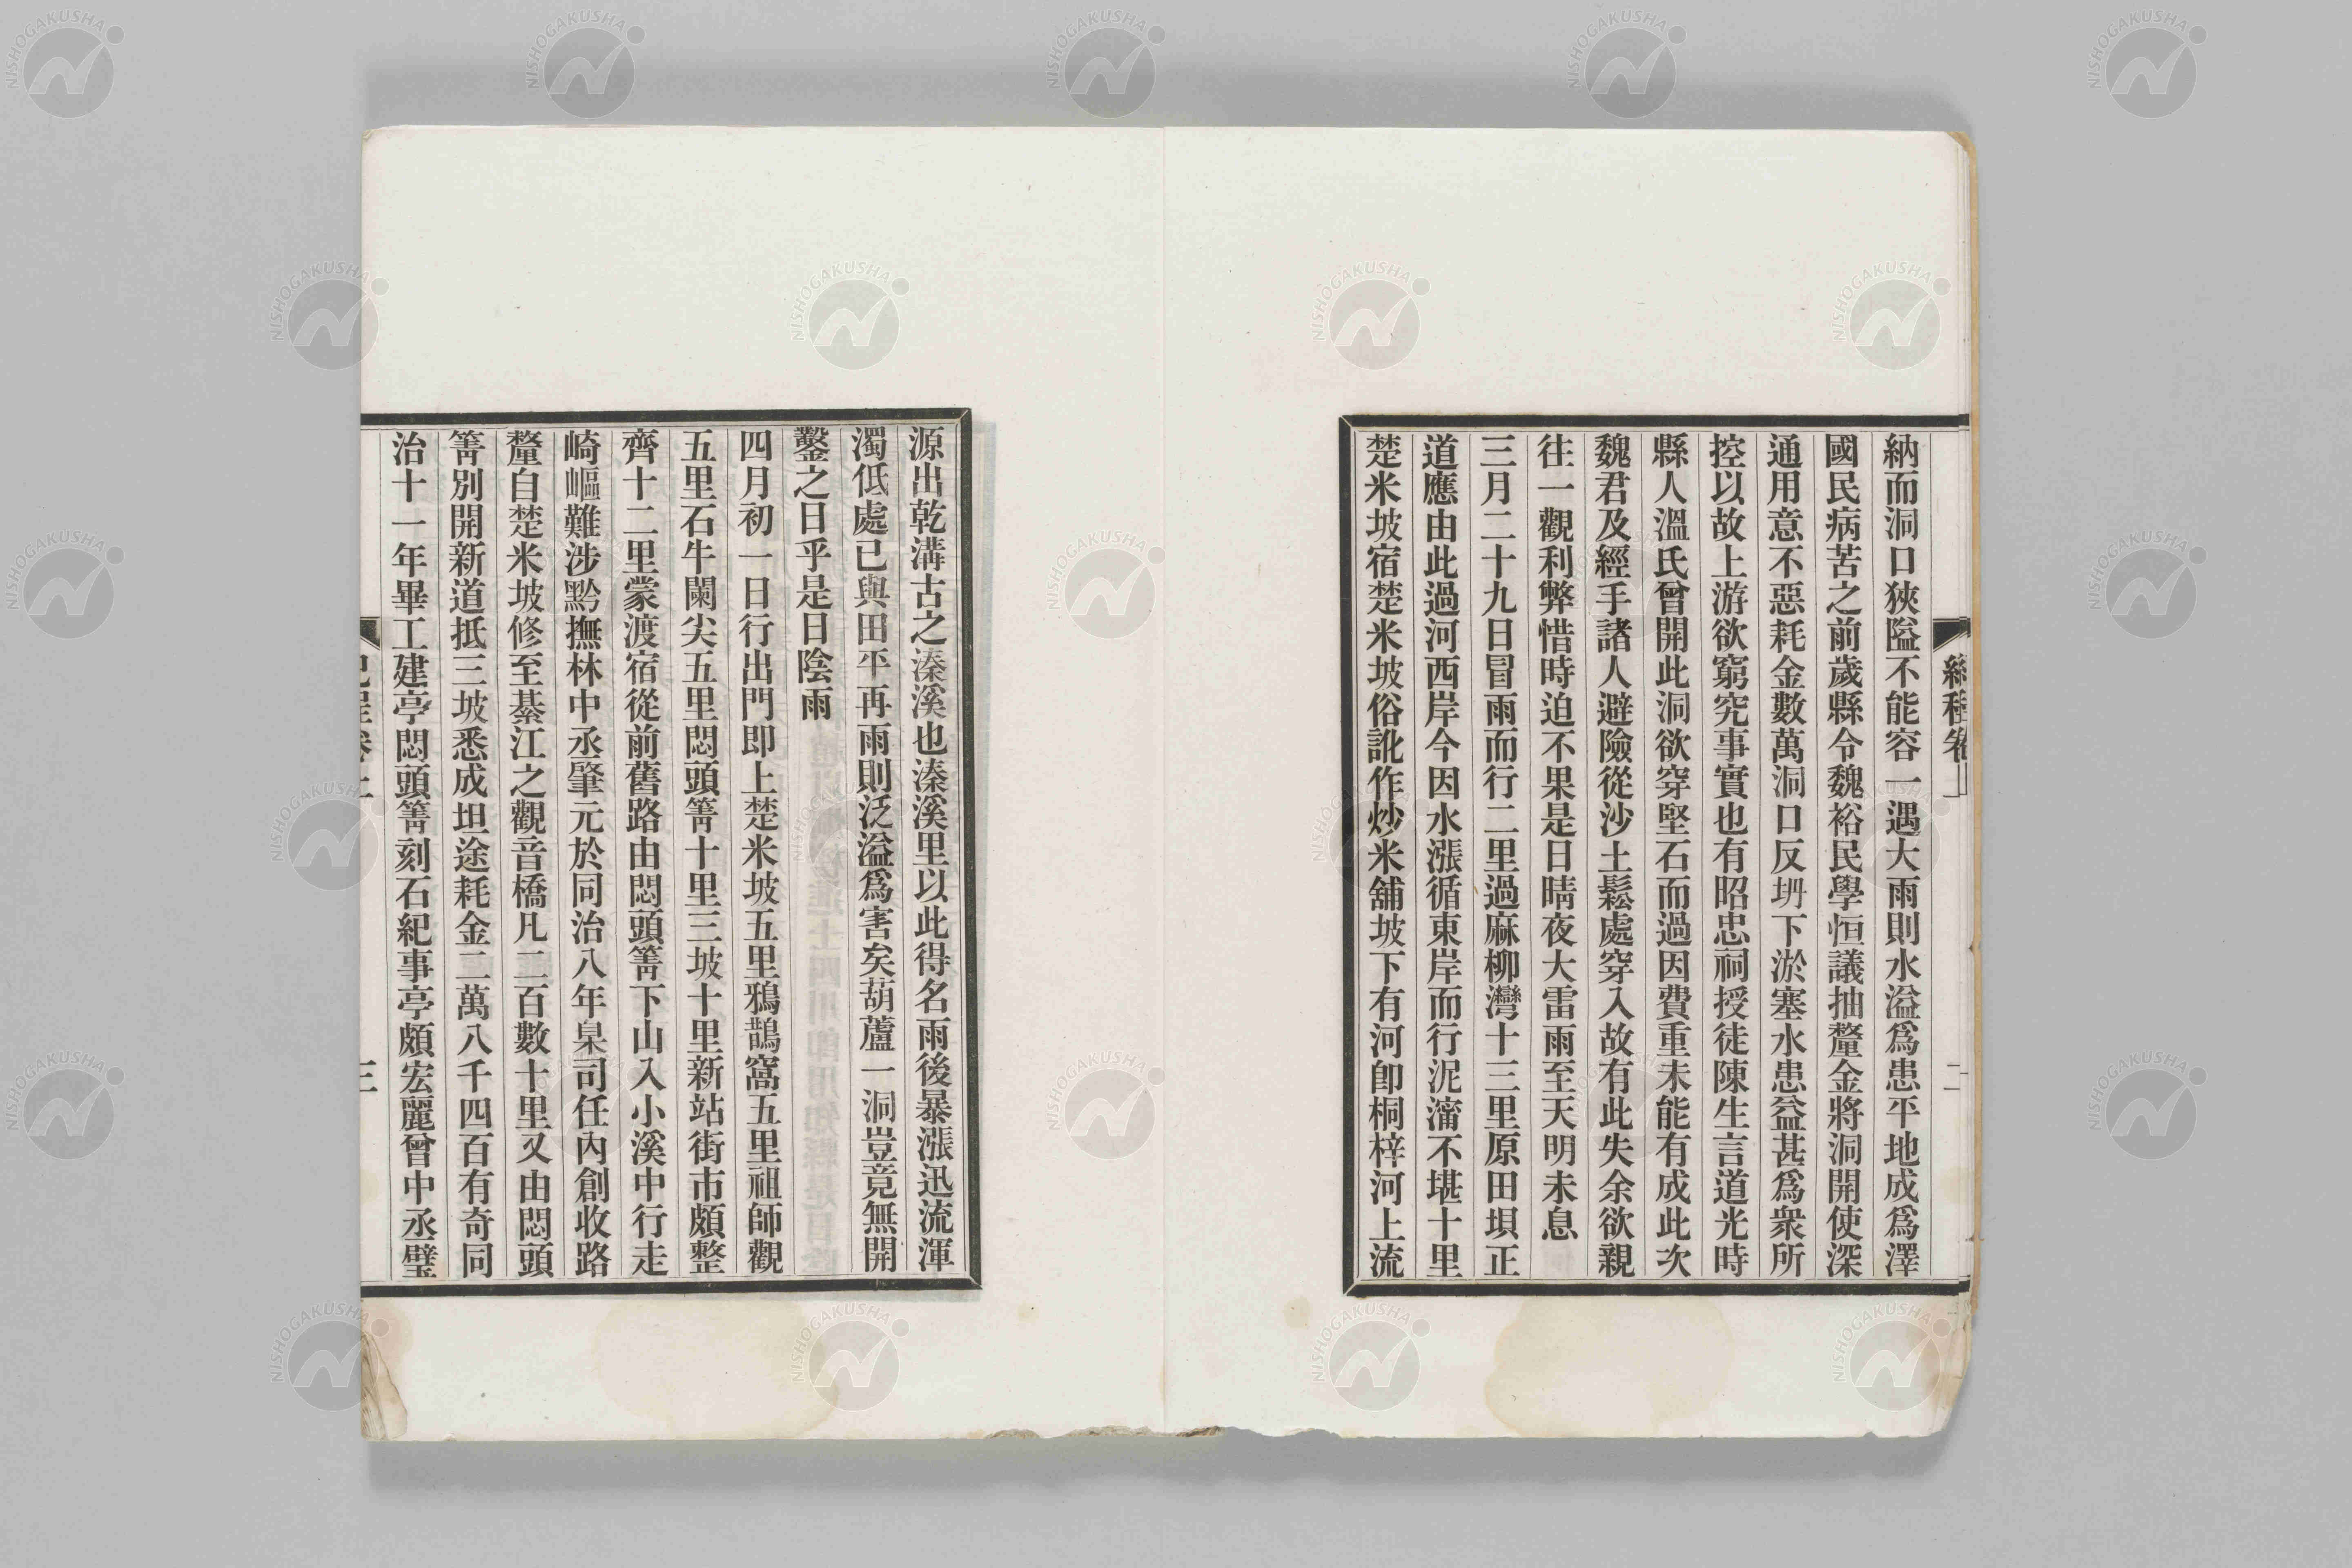 納而洞口狹隘不能容一遇大雨則水溢爲患平地成爲澤
國民病苦之前歲縣令魏裕民學恒議抽釐金將洞開使深
通用意不惡耗金數萬洞口反坍下淤塞水患益甚爲衆所
控以故上游欲窮究事實也有昭忠祠授徒陳生言道光時
縣人溫氏曾開此洞欲穿堅石而過因費重未能有成此次
魏君及經手諸人避險從沙土鬆處穿入故有此失余欲親
往一觀利弊惜時迫不果是日晴夜大雷雨至天明未息
三月二十九日冒雨而行二里過麻柳灣十三里原田垻正
道應由此過河西岸今因水漲循東岸而行泥濘不堪十里
楚米坡宿楚米坡俗訛作炒米舖坡下有河卽桐梓河上流
源出乾溝古之溱溪也溱溪里以此得名雨後暴漲迅流渾
濁低處已與田平再雨則泛溢爲害矣葫蘆一洞豈竟無開
鑿之日乎是日陰雨
四月初一日行出門即上楚米坡五里鴉鵲窩五里祖師觀
五里石牛闌尖五里悶頭箐十里三坡十里新站街市頗整
齊十二里蒙渡宿從前舊路由悶頭箐下山入小溪中行走
崎嶇難涉黔撫林中丞肇元於同治八年臬司任內創收路
釐自楚米坡修至綦江之觀音橋凡二百數十里又由悶頭
箐別開新道抵三坡悉成坦途耗金二萬八千四百有奇同
治十一年畢工建亭悶頭箐刻石紀事亭頗宏麗曾中丞璧
紀程卷上
三